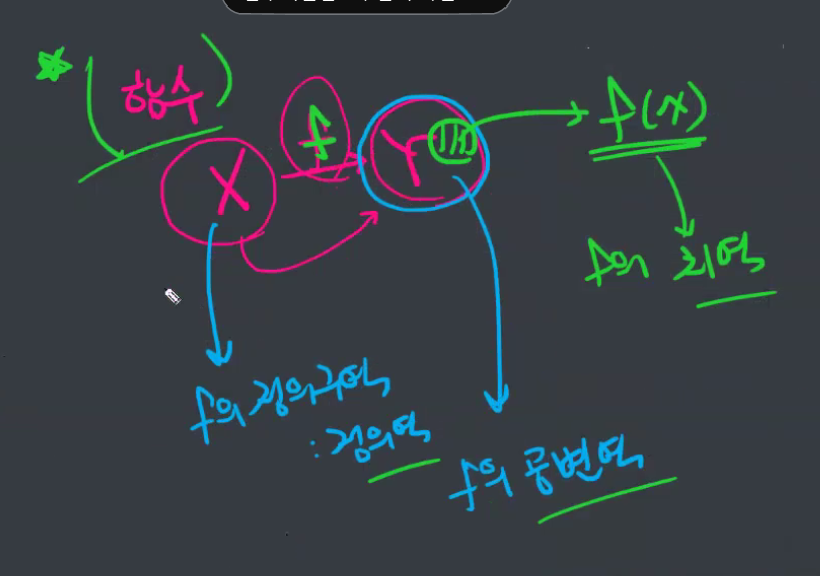 (함수)
f
X
Y
f(x)
f의 치역
f의 정의구역
: 정의역
f의 공변역